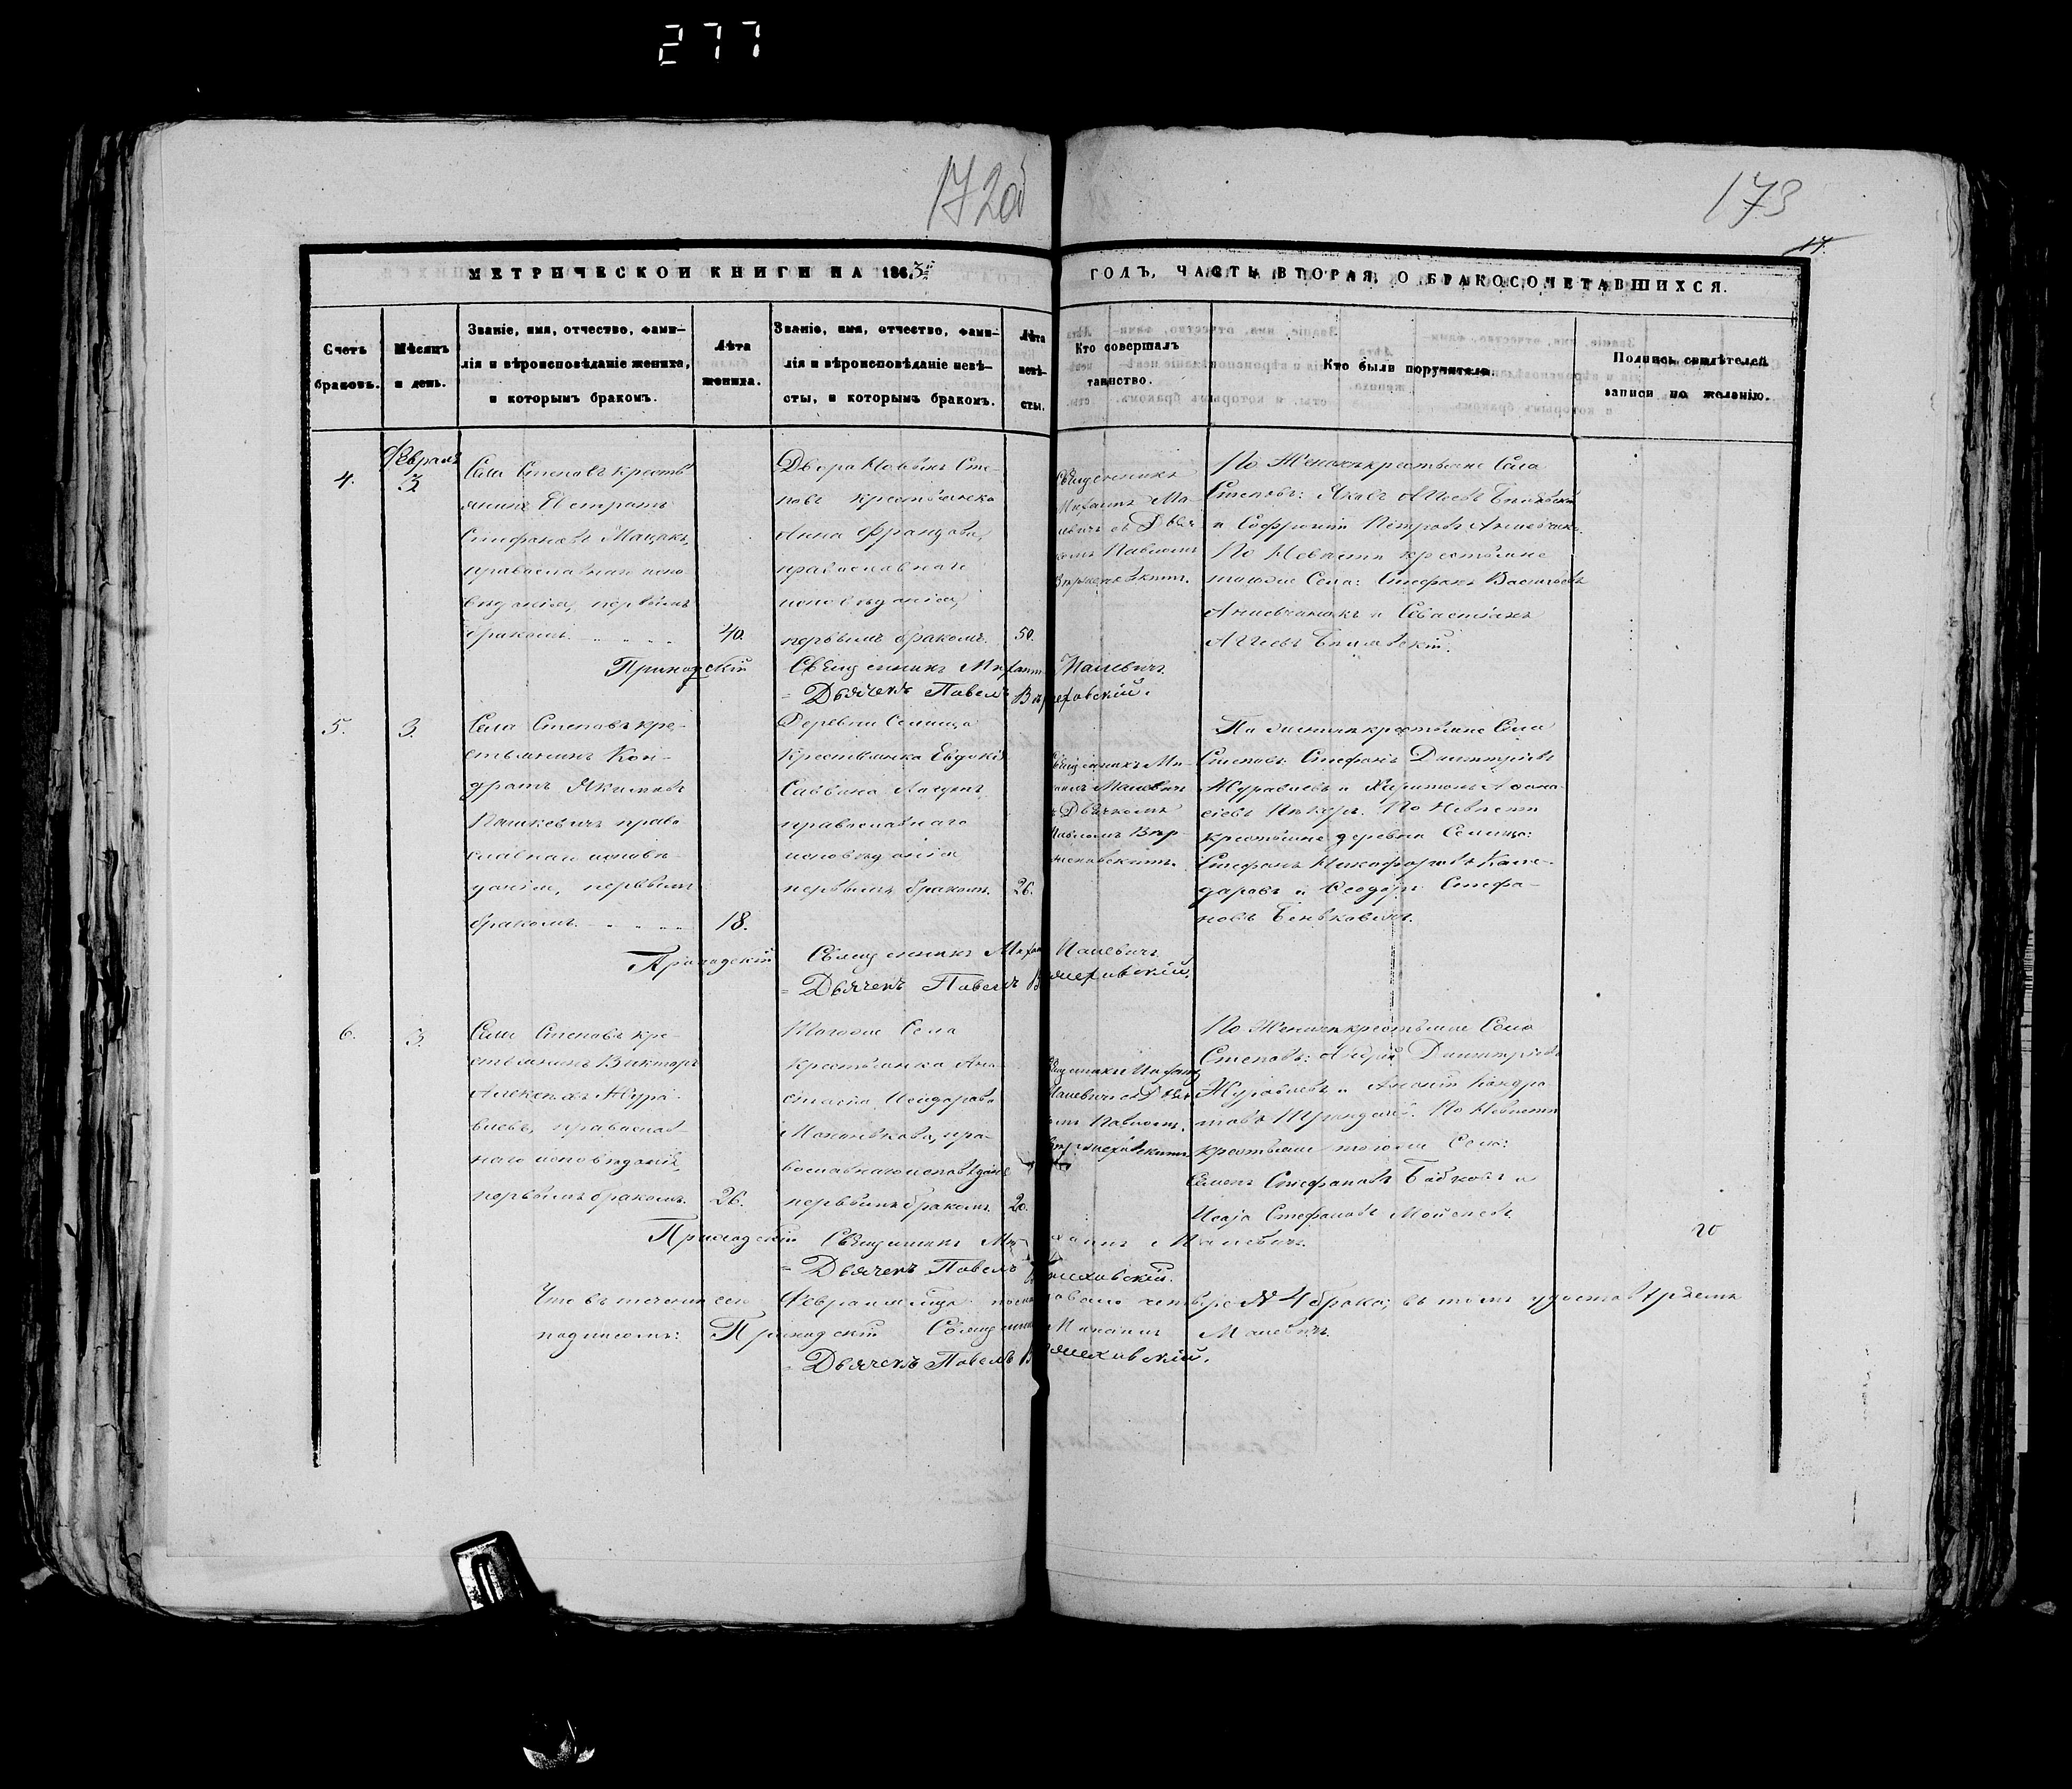 277
172об
173
17.
МЕТРИЧЕСКОЙ КНИГИ НА 1863й
ГОДЪ, ЧАСТЬ ВТОРАЯ, О БРАКОСОЧЕТАВШИХСЯ.
Счетъ
браковъ.
Мѣсяцъ
и день.
Званіе, имя, отчество, фами-
лія и вѣроисповѣданіе жениха,
и которымъ бракомъ.
Лѣта
жениха.
Званіе, имя, отчество, фами-
лія и вѣроисповѣданіе невѣ-
сты, и которымъ бракомъ.
Лѣта
невѣ-
сты.
Кто совершалъ
таинство.
Кто были поручители.
Подпись свидѣтелей
записи по желанію.
4.
Февраль
3
Села Степовъ кресть
янинъ
Стефановъ
православнаго испо
вѣданія, первымъ
бракомъ.
40.
Двора Сте-
повъ крестьянка
Анна Францова,
православнаго
исповѣданія,
первымъ бракомъ.
50.
Священникъ
Михаилъ Ма-
левичъ съ Дьяч
комъ Павломъ
По Женихѣ крестьяне Села
Степовъ: Яковъ
и Софроній Петровъ
По Невѣстѣ крестьяне
тогоже Села: Стефанъ Васильевъ
и Севастіанъ
Приходскій Священникъ Михаилъ Малевичъ.
= Дьячекъ Павелъ
5.
3.
Села Степовъ кре-
стьянинъ Кон-
дратъ Якимовъ
Пашкевичъ право
славнаго исповѣ-
данія, первымъ
бракомъ.
18.
Деревни Селища
Крестьянка Евдокія
Саввина
православнаго
исповѣданія
первымъ бракомъ.
26.
Священникъ Ми-
хаилъ Малевичъ
съ Дьячкомъ
Павломъ
По Женихѣ крестьяне Села
Степовъ: Стефанъ Димитріевъ
Журавлевъ и Харитонъ Афана-
сіевъ По Невѣстѣ
крестьяне деревни Селища:
Стефанъ Никифоровъ
и Феодоръ Стефа-
новъ Беньковичъ.
Приходскій Священникъ Михаилъ Малевичъ.
= Дьячекъ Павелъ
6.
3.
Села Степовъ кре-
стьянинъ Викторъ
Алексѣевъ Жура-
влевъ, православ-
наго исповѣданія,
первымъ бракомъ.
26.
Тогоже Села
крестьянка Ана-
стасія Исидорова
пра-
вославнаго исповѣданія
первымъ бракомъ.
20.
Священникъ Михаилъ
Малевичъ съ Дьяч
комъ Павломъ
По Женихѣ крестьяне Села
Степовъ: Андрей Димитріевъ
Журавлевъ и Кондра
товъ По Невѣстѣ
крестьяне тогоже Села:
Семенъ Стефановъ Бабковъ и
Исаія Стефановъ
20
Приходскій Священникъ Михаилъ Малевичъ.
= Дьячекъ Павелъ
Что въ теченіи сего Февраля м-ца четыре № 4 брака; въ томъ удостовѣряемъ
подписомъ: Приходскій Священникъ Михаилъ Малевичъ.
= Дьячекъ Павелъ